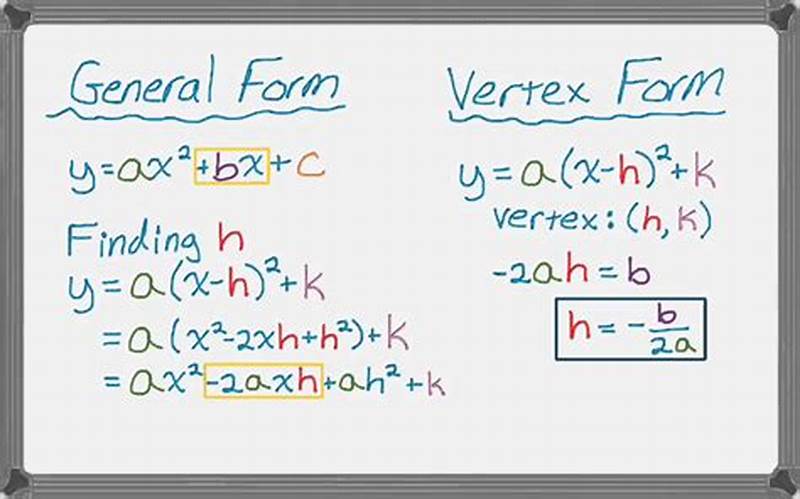 General Form
y=ax²+bx+c
Finding h
y=a(x-h)²+k
=a(x²-2xh+h²)+k
=ax²-2axh+ah²+k
Vertex Form
y=a(x-h)²+k
vertex: (h,k)
-2ah=b
h=-b/2a